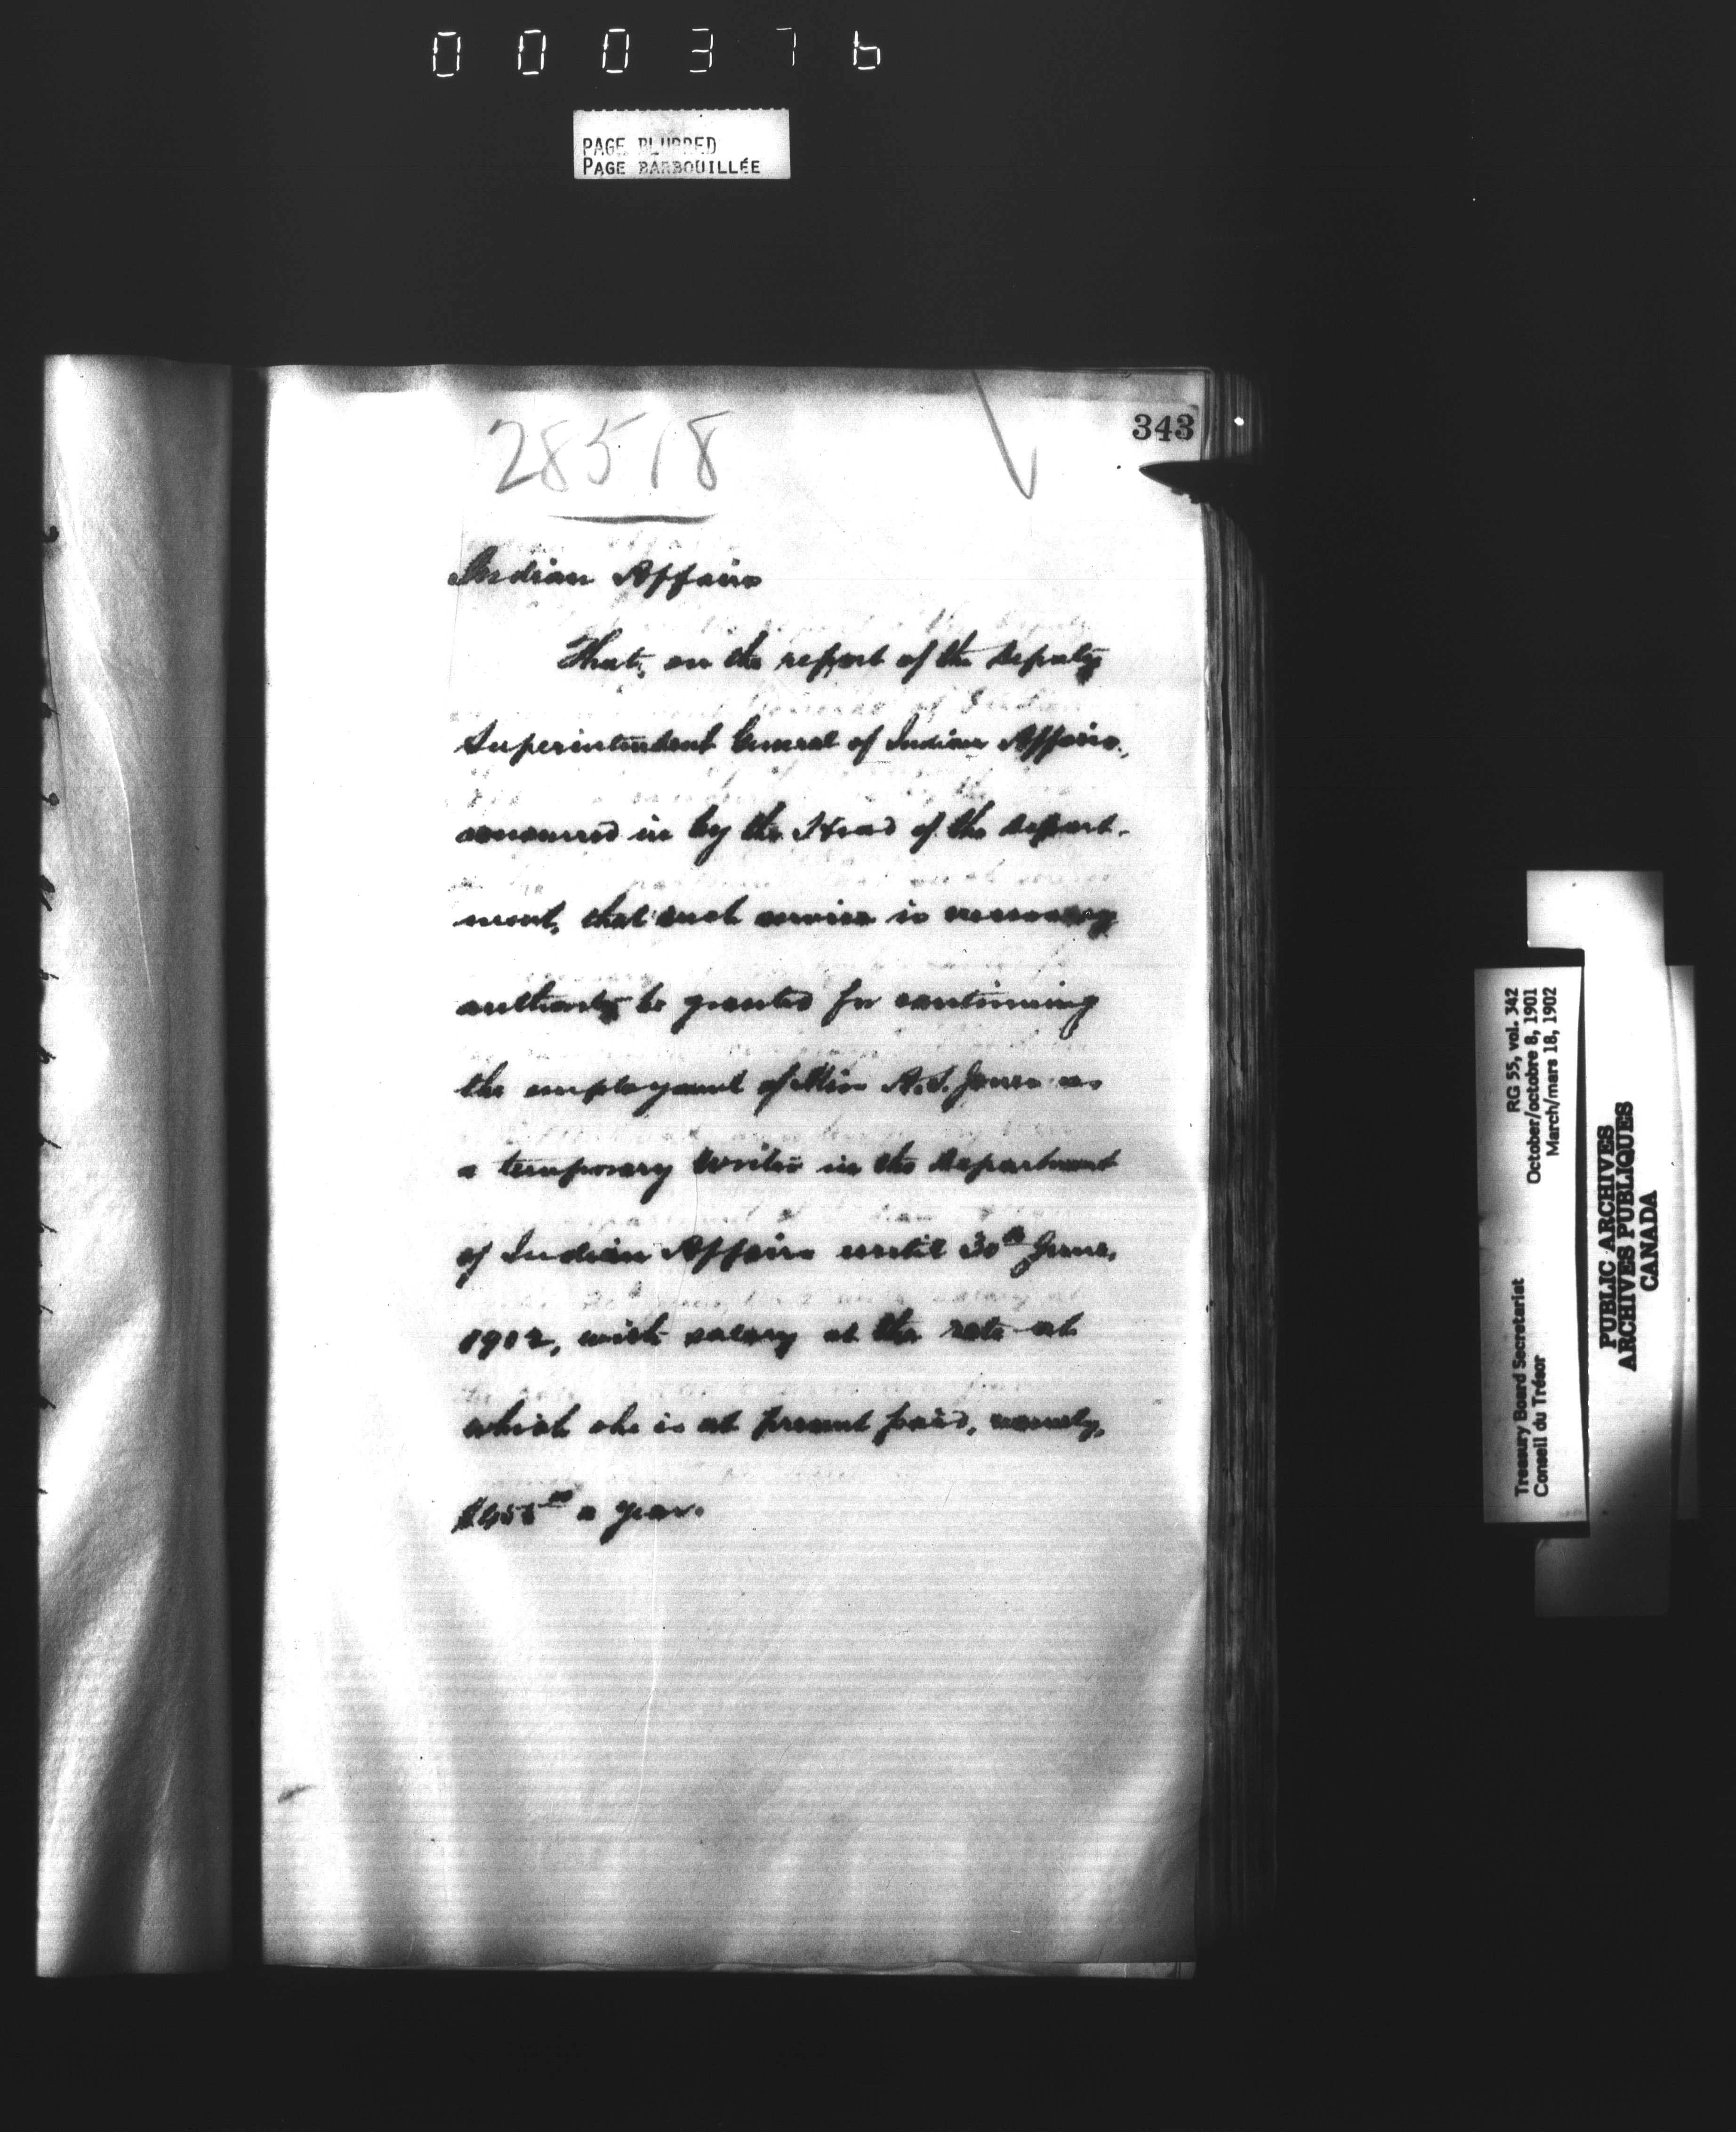 000376
PAGE BLURRED
PAGE BARBOUILLÉE
343
28518
Indian Affairs
That, on the report of the Deputy
Superintendent General of Indian Affairs,
concurred in by the Head of the Depart-
ment, that such service is necessary
authority be granted for continuing
the employment of Miss A.S. Jones as
a temporary Writer in the Department
of Indian Affairs until 30th June,
1902, with salary at the rate at
which she is at present paid, namely,
a year.
RG 55, vol. 342
October/octobre 8, 1901
March/mars 18, 1902
Treasury Board Secretariat
Conseil du Trésor
PUBLIC ARCHIVES
ARCHIVES PUBLIQUES
CANADA